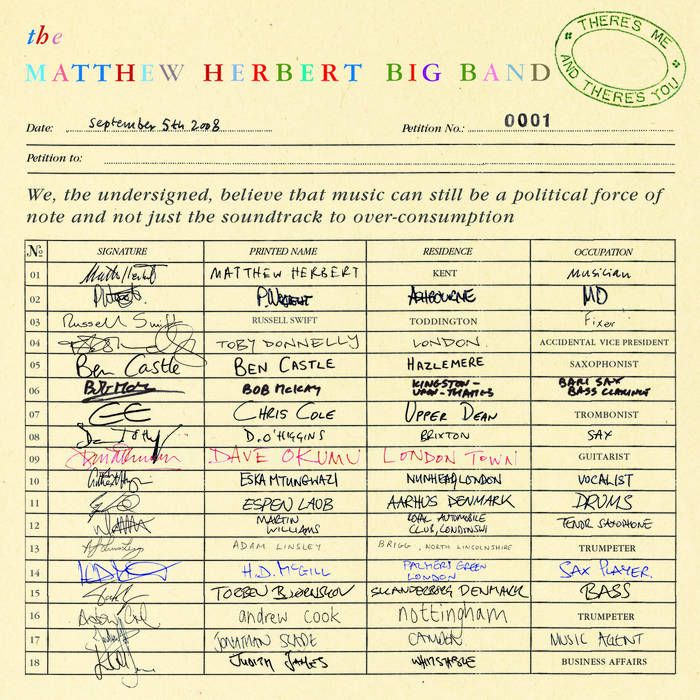 the
MATTHEW HERBERT BIG BAND
THERE'S ME
AND THERE'S YOU
Date: September 5th 2008 Petition No.: 0001
Petition to:
We, the undersigned, believe that music can still be a political force of
note and not just the soundtrack to over-consumption
№ SIGNATURE PRINTED NAME RESIDENCE OCCUPATION
01 MATTHEW HERBERT KENT Musician
02 P.WRIGHT ASHBOURNE MD
03 Russell Swift RUSSELL SWIFT TODDINGTON Fixer
04 TOBY DONNELLY LONDON. ACCIDENTAL VICE PRESIDENT
05 Ben Castle BEN CASTLE HAZLEMERE SAXOPHONIST
06 BOB MCKAY KINGSTON-
UPON-THAMES BARI SAX
BASS CLARINET
07 CHRIS COLE UPPER DEAN TROMBONIST
08 D.O'HIGGINS BRIXTON SAX
09 DAVE OKUMU LONDON TOWN GUITARIST
10 ESKA MTUNGWAZI NUNHEAD, LONDON VOCALIST
11 ESPEN LAUB AARHUS DENMARK DRUMS
12 MARTIN
WILLIAMS ROYAL AUTOMOBILE
CLUB, TENOR SAXOPHONE
13 ADAM LINSLEY BRIGG, NORTH LINCOLNSHIRE TRUMPETER
14 H.D. McGILL PALMERS GREEN
LONDON SAX PLAYER.
15 TORBEN BJØRNSKOV SKANDERBORG DENMARK BASS
16 andrew cook nottingham TRUMPETER
17 JONATHAN SLADE CAMDEN MUSIC AGENT
18 JUDITH JAMES WHITSTABLE BUSINESS AFFAIRS